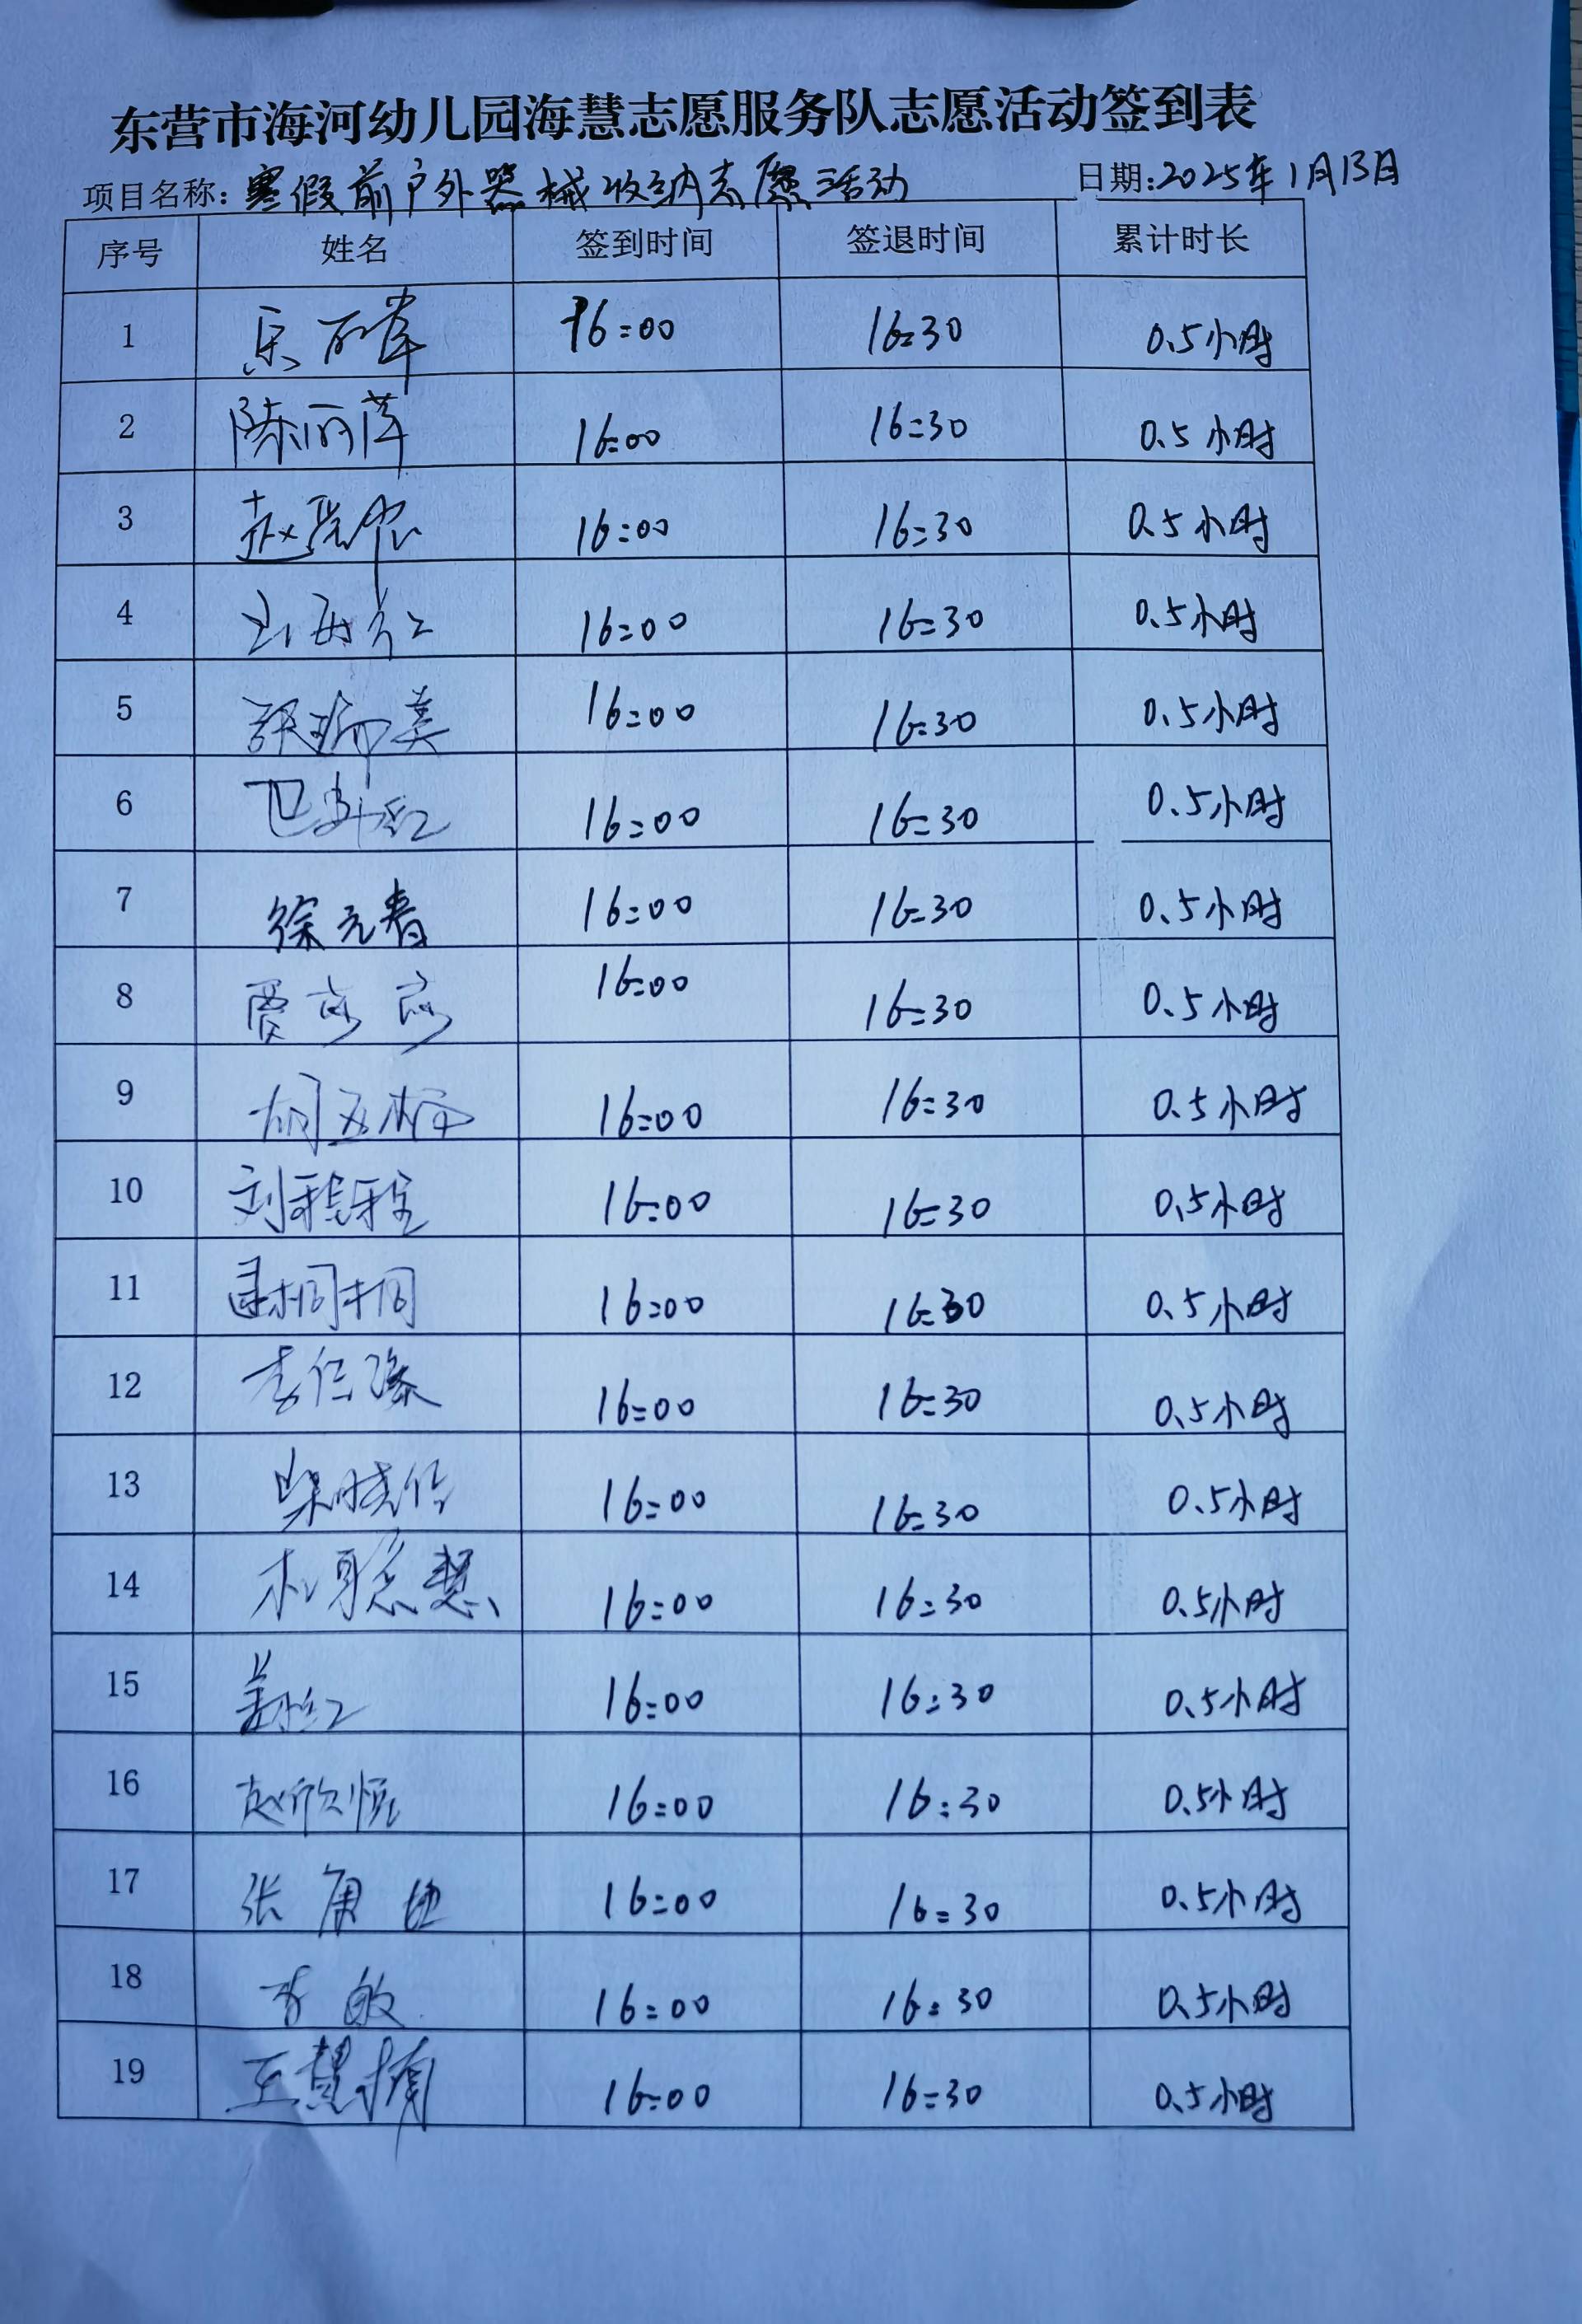 东营市海河幼儿园海慧志愿服务队志愿活动签到表
项目名称：寒假前户外器械收纳志愿活动 日期:2025年1月13日
序号 姓名 签到时间 签退时间 累计时长
1 16:00 16:30 0.5小时
2 陈丽萍 16:00 16:30 0.5小时
3 赵 16:00 16:30 0.5小时
4 16:00 16:30 0.5小时
5 张瑞美 16:00 16:30 0.5小时
6 16:00 16:30 0.5小时
7 徐元春 16:00 16:30 0.5小时
8 贾莎莎 16:00 16:30 0.5小时
9 胡玉梅 16:00 16:30 0.5小时
10 刘程程 16:00 16:30 0.5小时
11 16:00 16:30 0.5小时
12 李 16:00 16:30 0.5小时
13 16:00 16:30 0.5小时
14 聪慧 16:00 16:30 0.5小时
15 姜红 16:00 16:30 0.5小时
16 赵欣悦 16:00 16:30 0.5小时
17 张 16:00 16:30 0.5小时
18 李敏 16:00 16:30 0.5小时
19 王慧 16:00 16:30 0.5小时